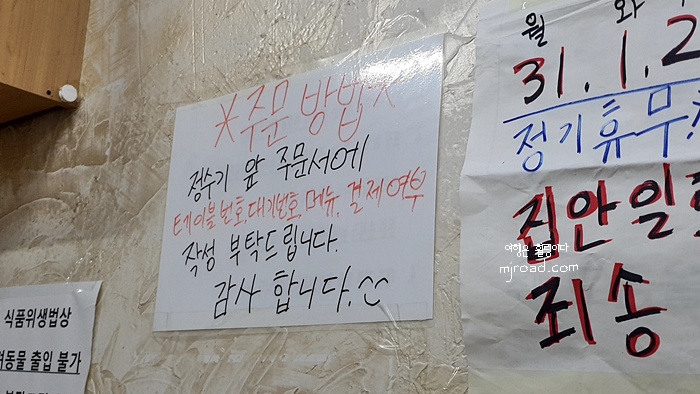 *주문 방법*
정수기 앞 주문서에
테이블 번호, 대기번호, 메뉴, 결제여부
작성 부탁드립니다.
감사 합니다.
월 화
31.1.2
정기휴무
집안일
죄송
여행은 꿀팁이다
mjroad.com
식품위생법상
동물 출입 불가